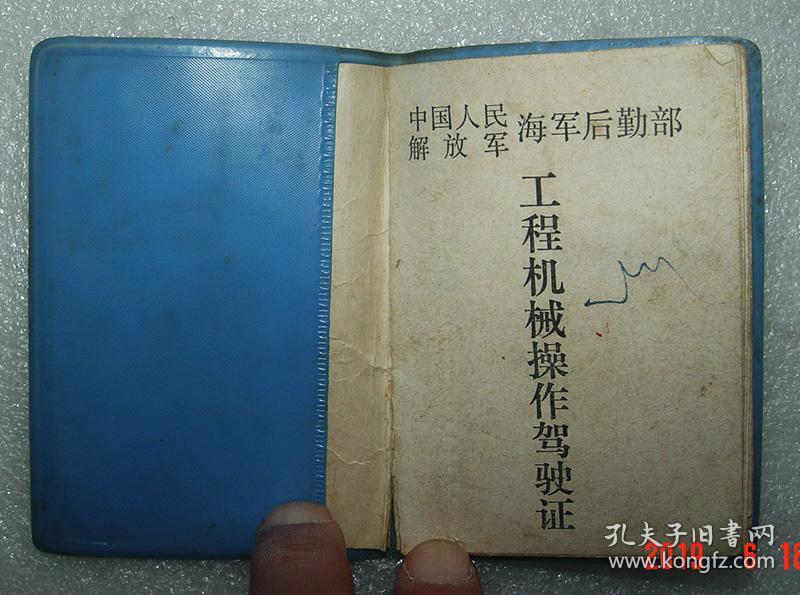 中国人民
解放军
海军后勤部
工程机械操作驾驶证
孔夫子旧书网
www.kongfz.com